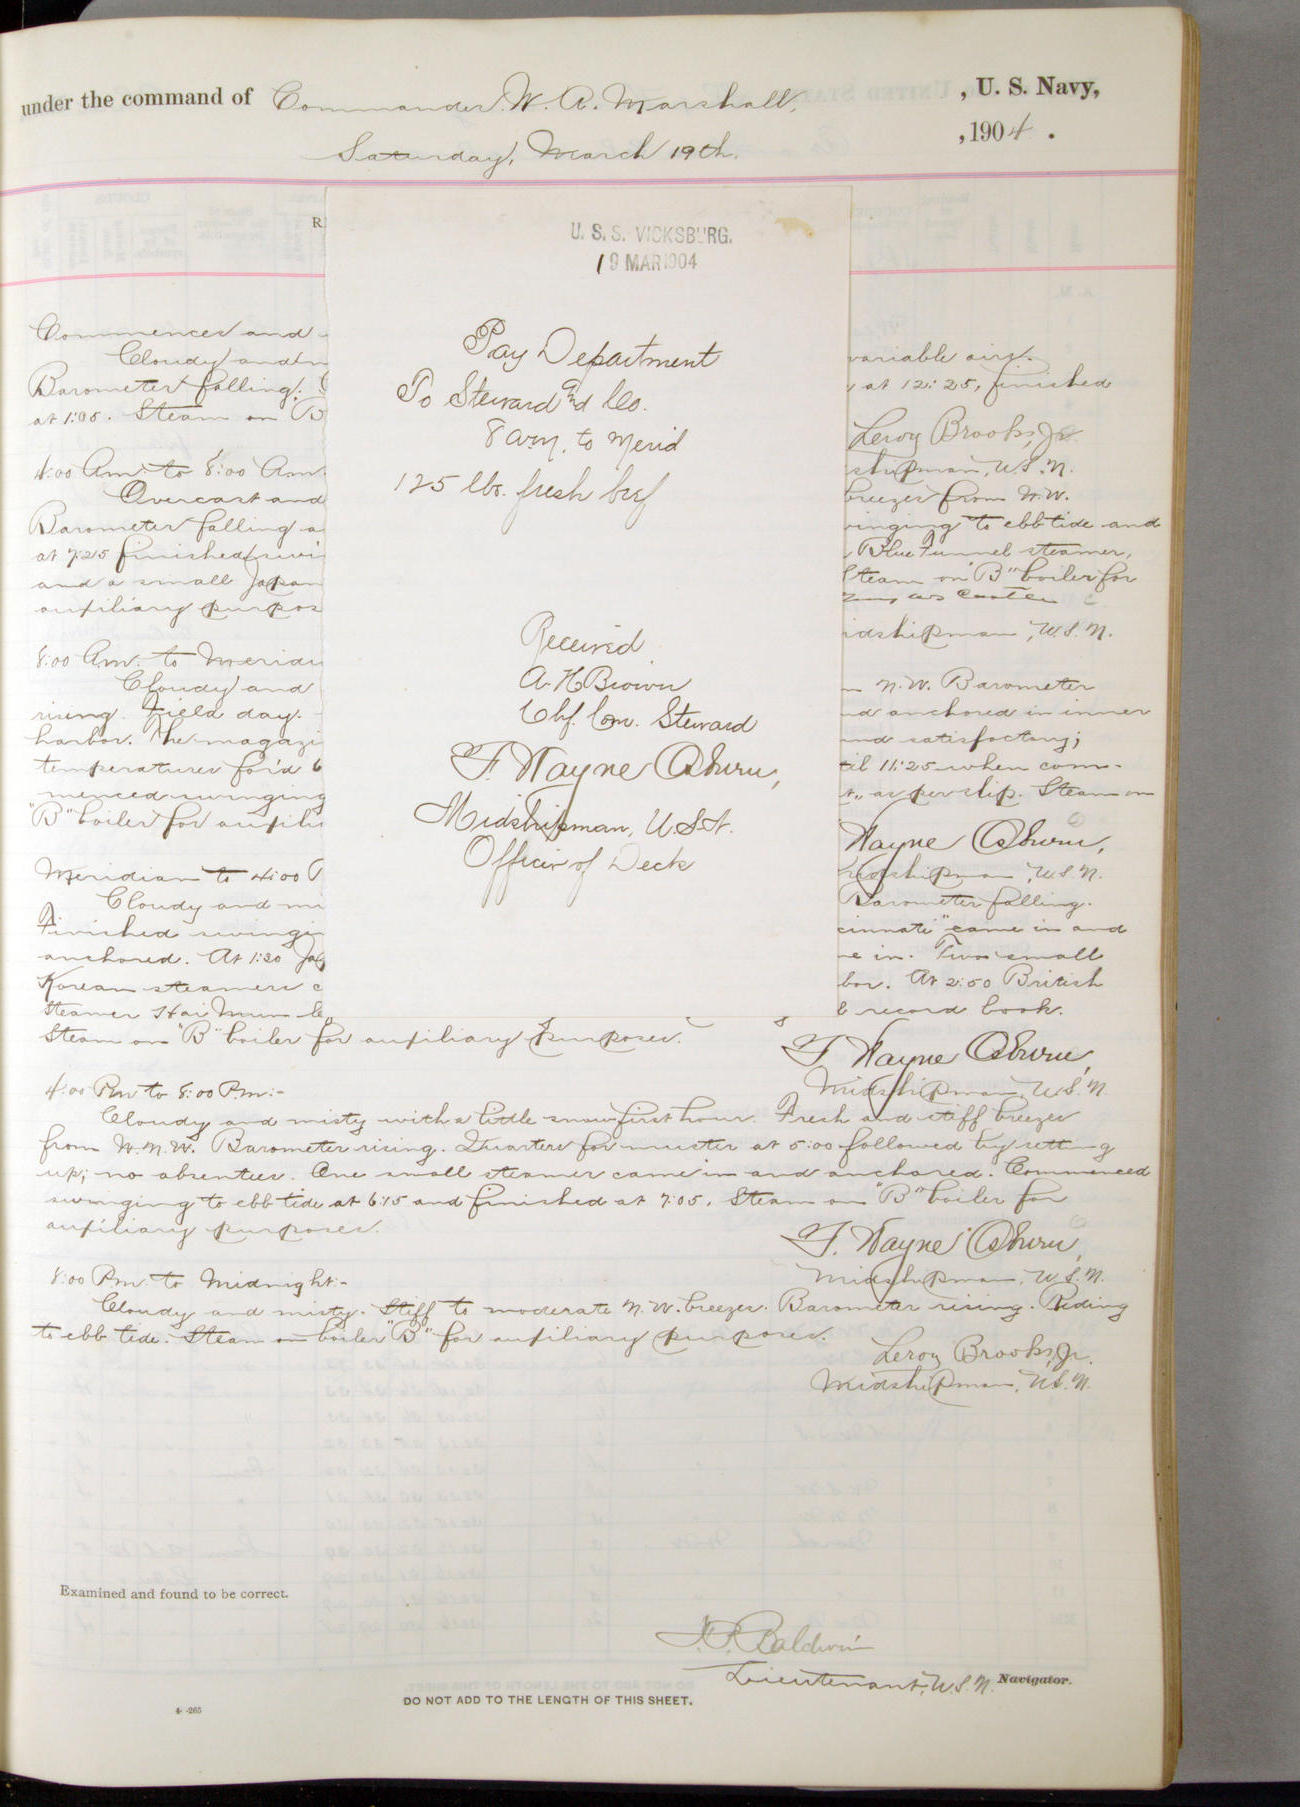 under the command of Commander W. A. Marshall, , U. S. Navy,
Saturday, March 19th. , 1904 .
R
U. S. S. VICKSBURG.
19 MAR 1904
Pay Department
To Steward and Co.
8 a.m. to Merid
125 lbs. fresh beef
Received
A. H. Brown
Chf. Com. Steward
F. Wayne Osburn,
Midshipman, U.S.N.
Officer of Deck
Commences and
Cloudy and variable airs.
Barometer falling. at 12:25, finished
at 1:05. Steam on "B
Leroy Brooks, Jr.
shipman, U.S.N.
4:00 Am. to 8:00 Am.
Overcast and breezes from N.W.
Barometer falling a inging to ebb tide and
at 7:25 finished swi Blue Funnel steamer,
and a small Japan Steam on "B" boiler for
auxiliary purpos
idshipman, U.S.N.
8:00 Am. to Meridi
Cloudy and N.W. Barometer
rising. Field day. nd anchored in inner
harbor. The magazi and satisfactory;
temperatures for'd 6 til 11:25 when com-
menced swinging as per slip. Steam on
"B" boiler for auxili
Wayne Osburn,
Midshipman, U.S.N.
Meridian to 4:00 P
Cloudy and mi Barometer falling.
Finished swingin cinnati" came in and
anchored. At 1:20 Jap e in. Two small
Korean steamers c bor. At 2:50 British
Steamer Hai Mun le record book.
Steam on "B" boiler for auxiliary purposes.
F. Wayne Osburn,
Midshipman, U.S.N.
4:00 Pm to 8:00 P.m:-
Cloudy and misty with a little snow first hour. Fresh and stiff breezes
from N.N.W. Barometer rising. Quarters for muster at 5:00 followed by setting
up; no absentees. One small steamer came in and anchored. Commenced
swinging to ebb tide at 6:15 and finished at 7:05. Steam on "B" boiler for
auxiliary purposes.
F. Wayne Osburn,
Midshipman, U.S.N.
8:00 Pm. to Midnight:-
Cloudy and misty. Stiff to moderate N.W. breezes. Barometer rising. Riding
to ebb tide. Steam on boiler "B" for auxiliary purposes.
Leroy Brooks, Jr.
Midshipman, U.S.N.
Examined and found to be correct.
Baldwin
Lieutenant, U.S.N. Navigator.
DO NOT ADD TO THE LENGTH OF THIS SHEET.
4-265